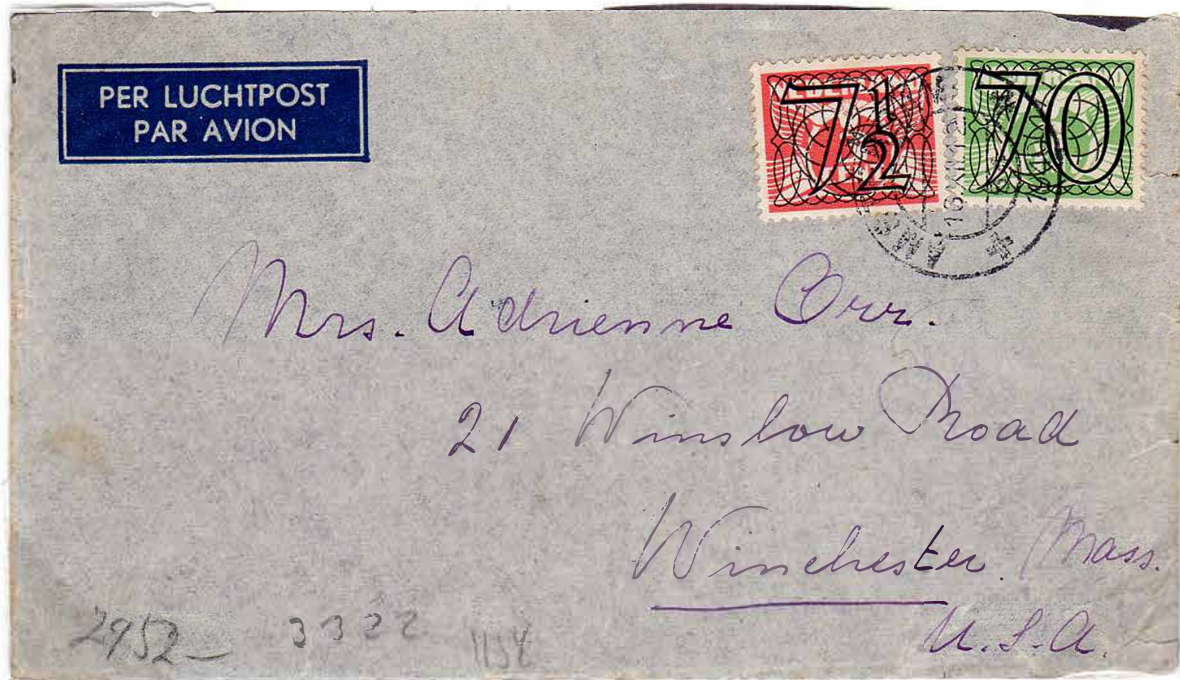 PER LUCHTPOST
PAR AVION
7½
70
Mrs. Adrienne Orr.
21 Winslow Road
Winchester. Mass.
U.S.A.
2952
3322